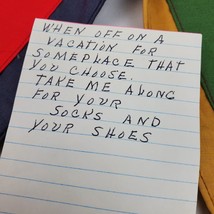 WHEN OFF ON A
VACATION FOR
SOMEPLACE THAT
YOU CHOOSE.
TAKE ME ALONG
FOR YOUR
SOCKS AND
YOUR SHOES